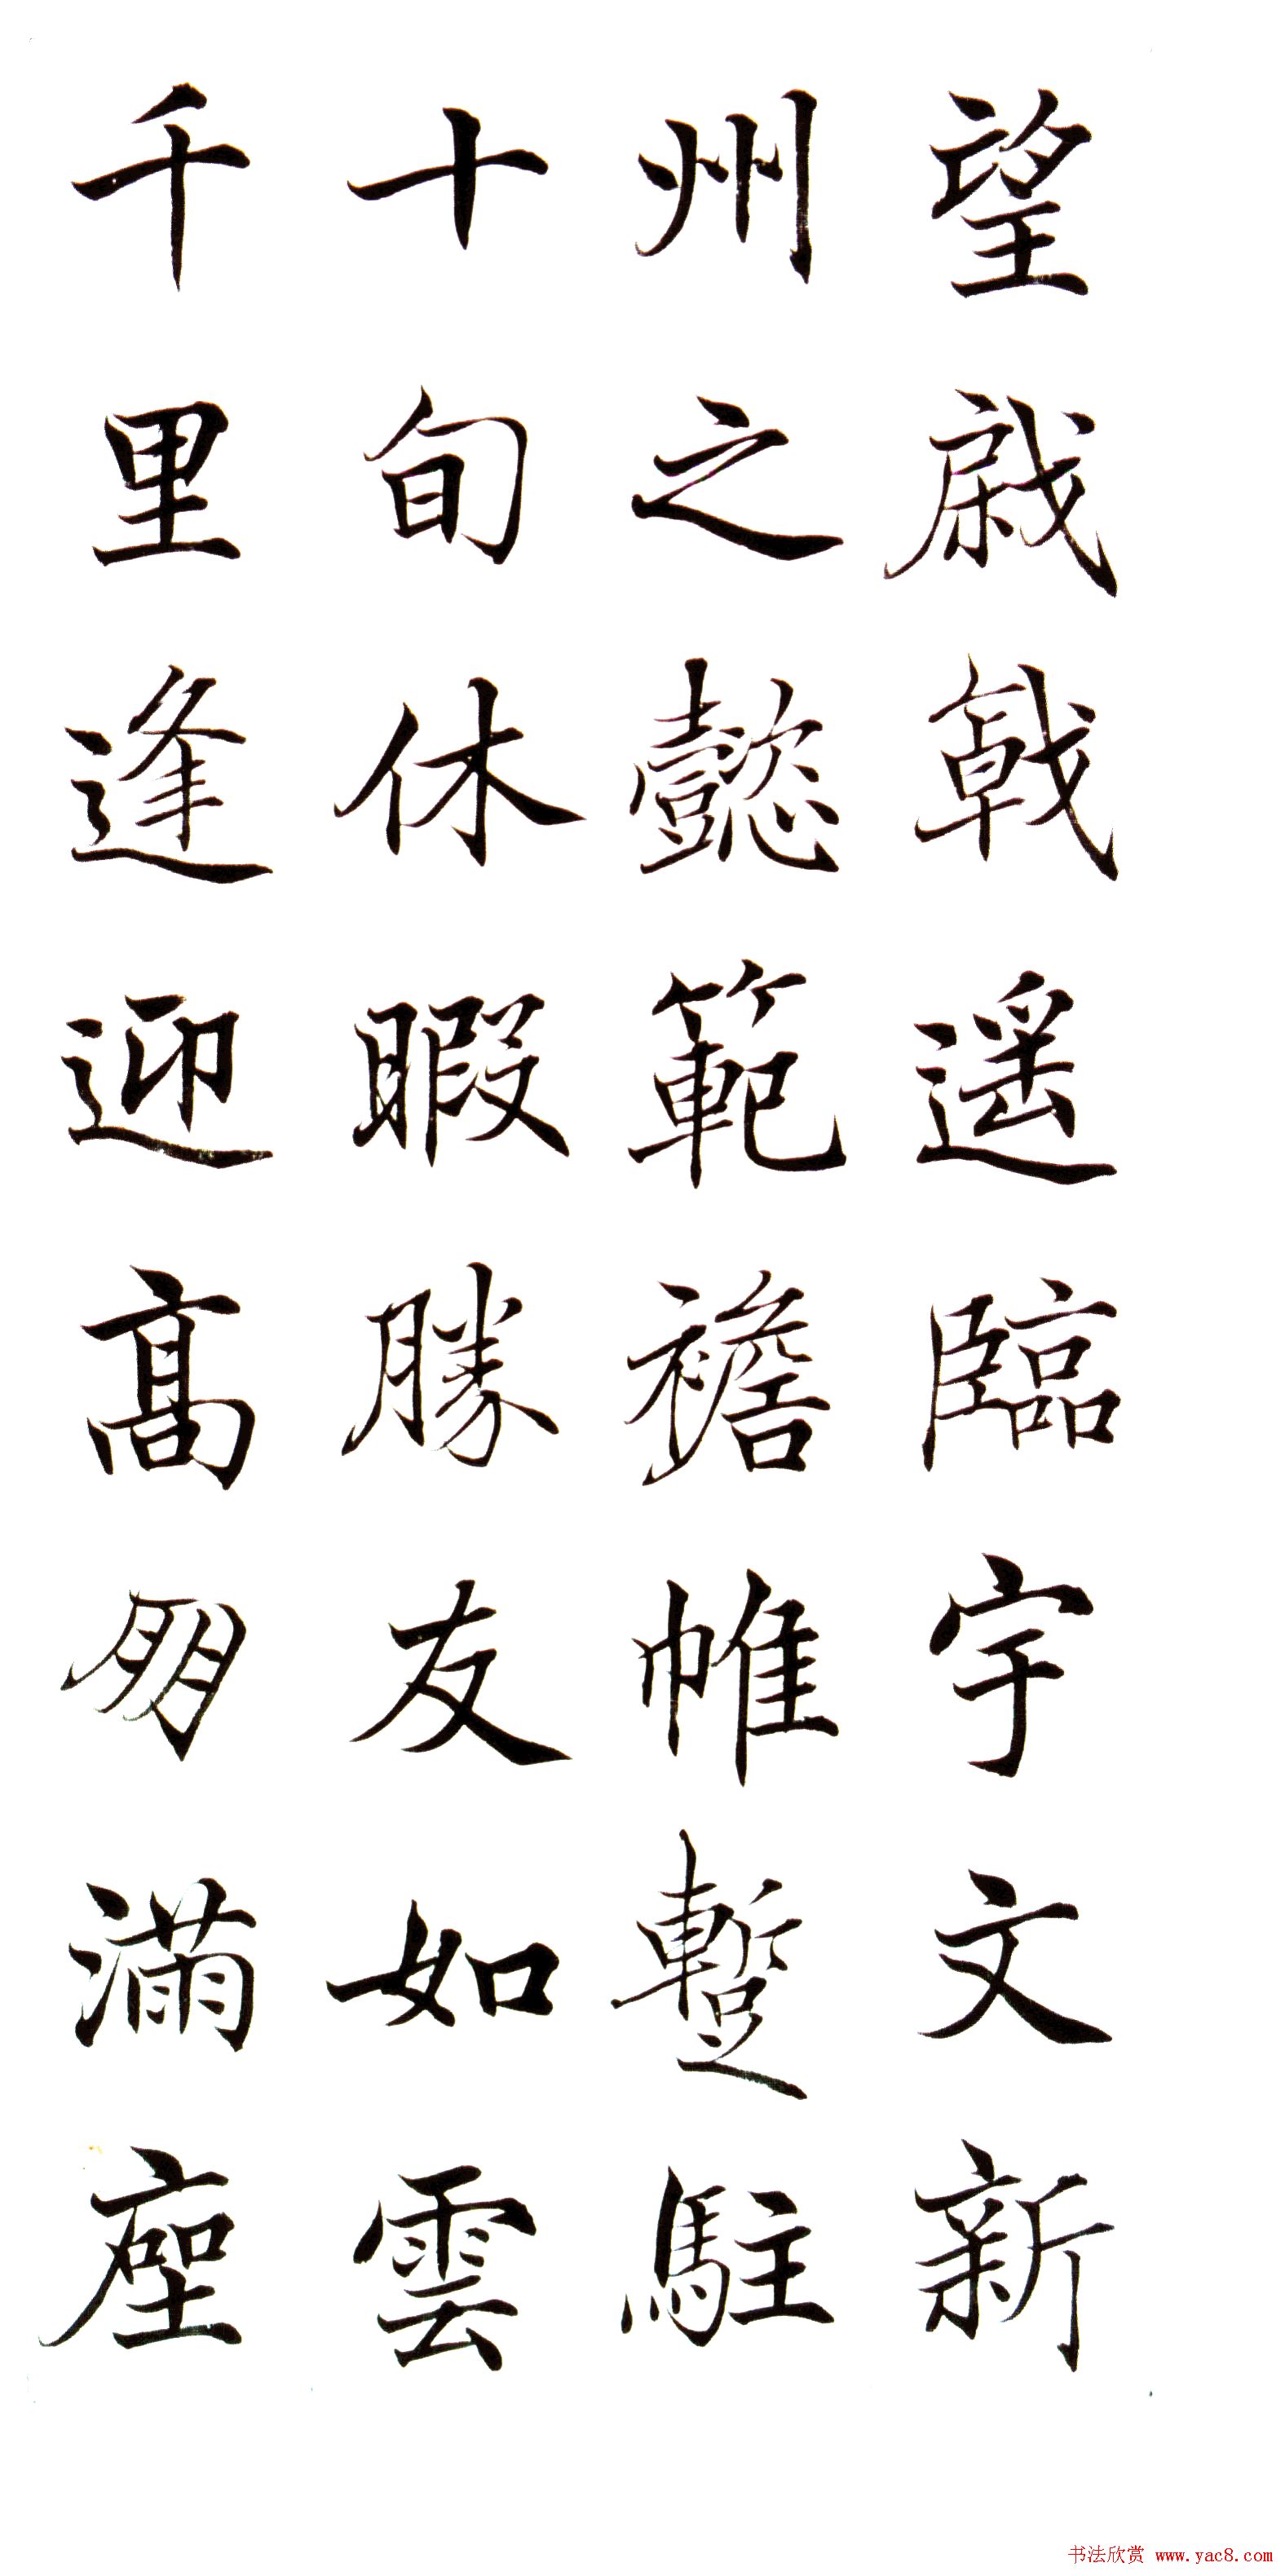 望棨戟遥臨宇文新
州之懿範襜帷暫駐
十旬休暇勝友如雲
千里逢迎高朋滿座
书法欣赏 www.yac8.com